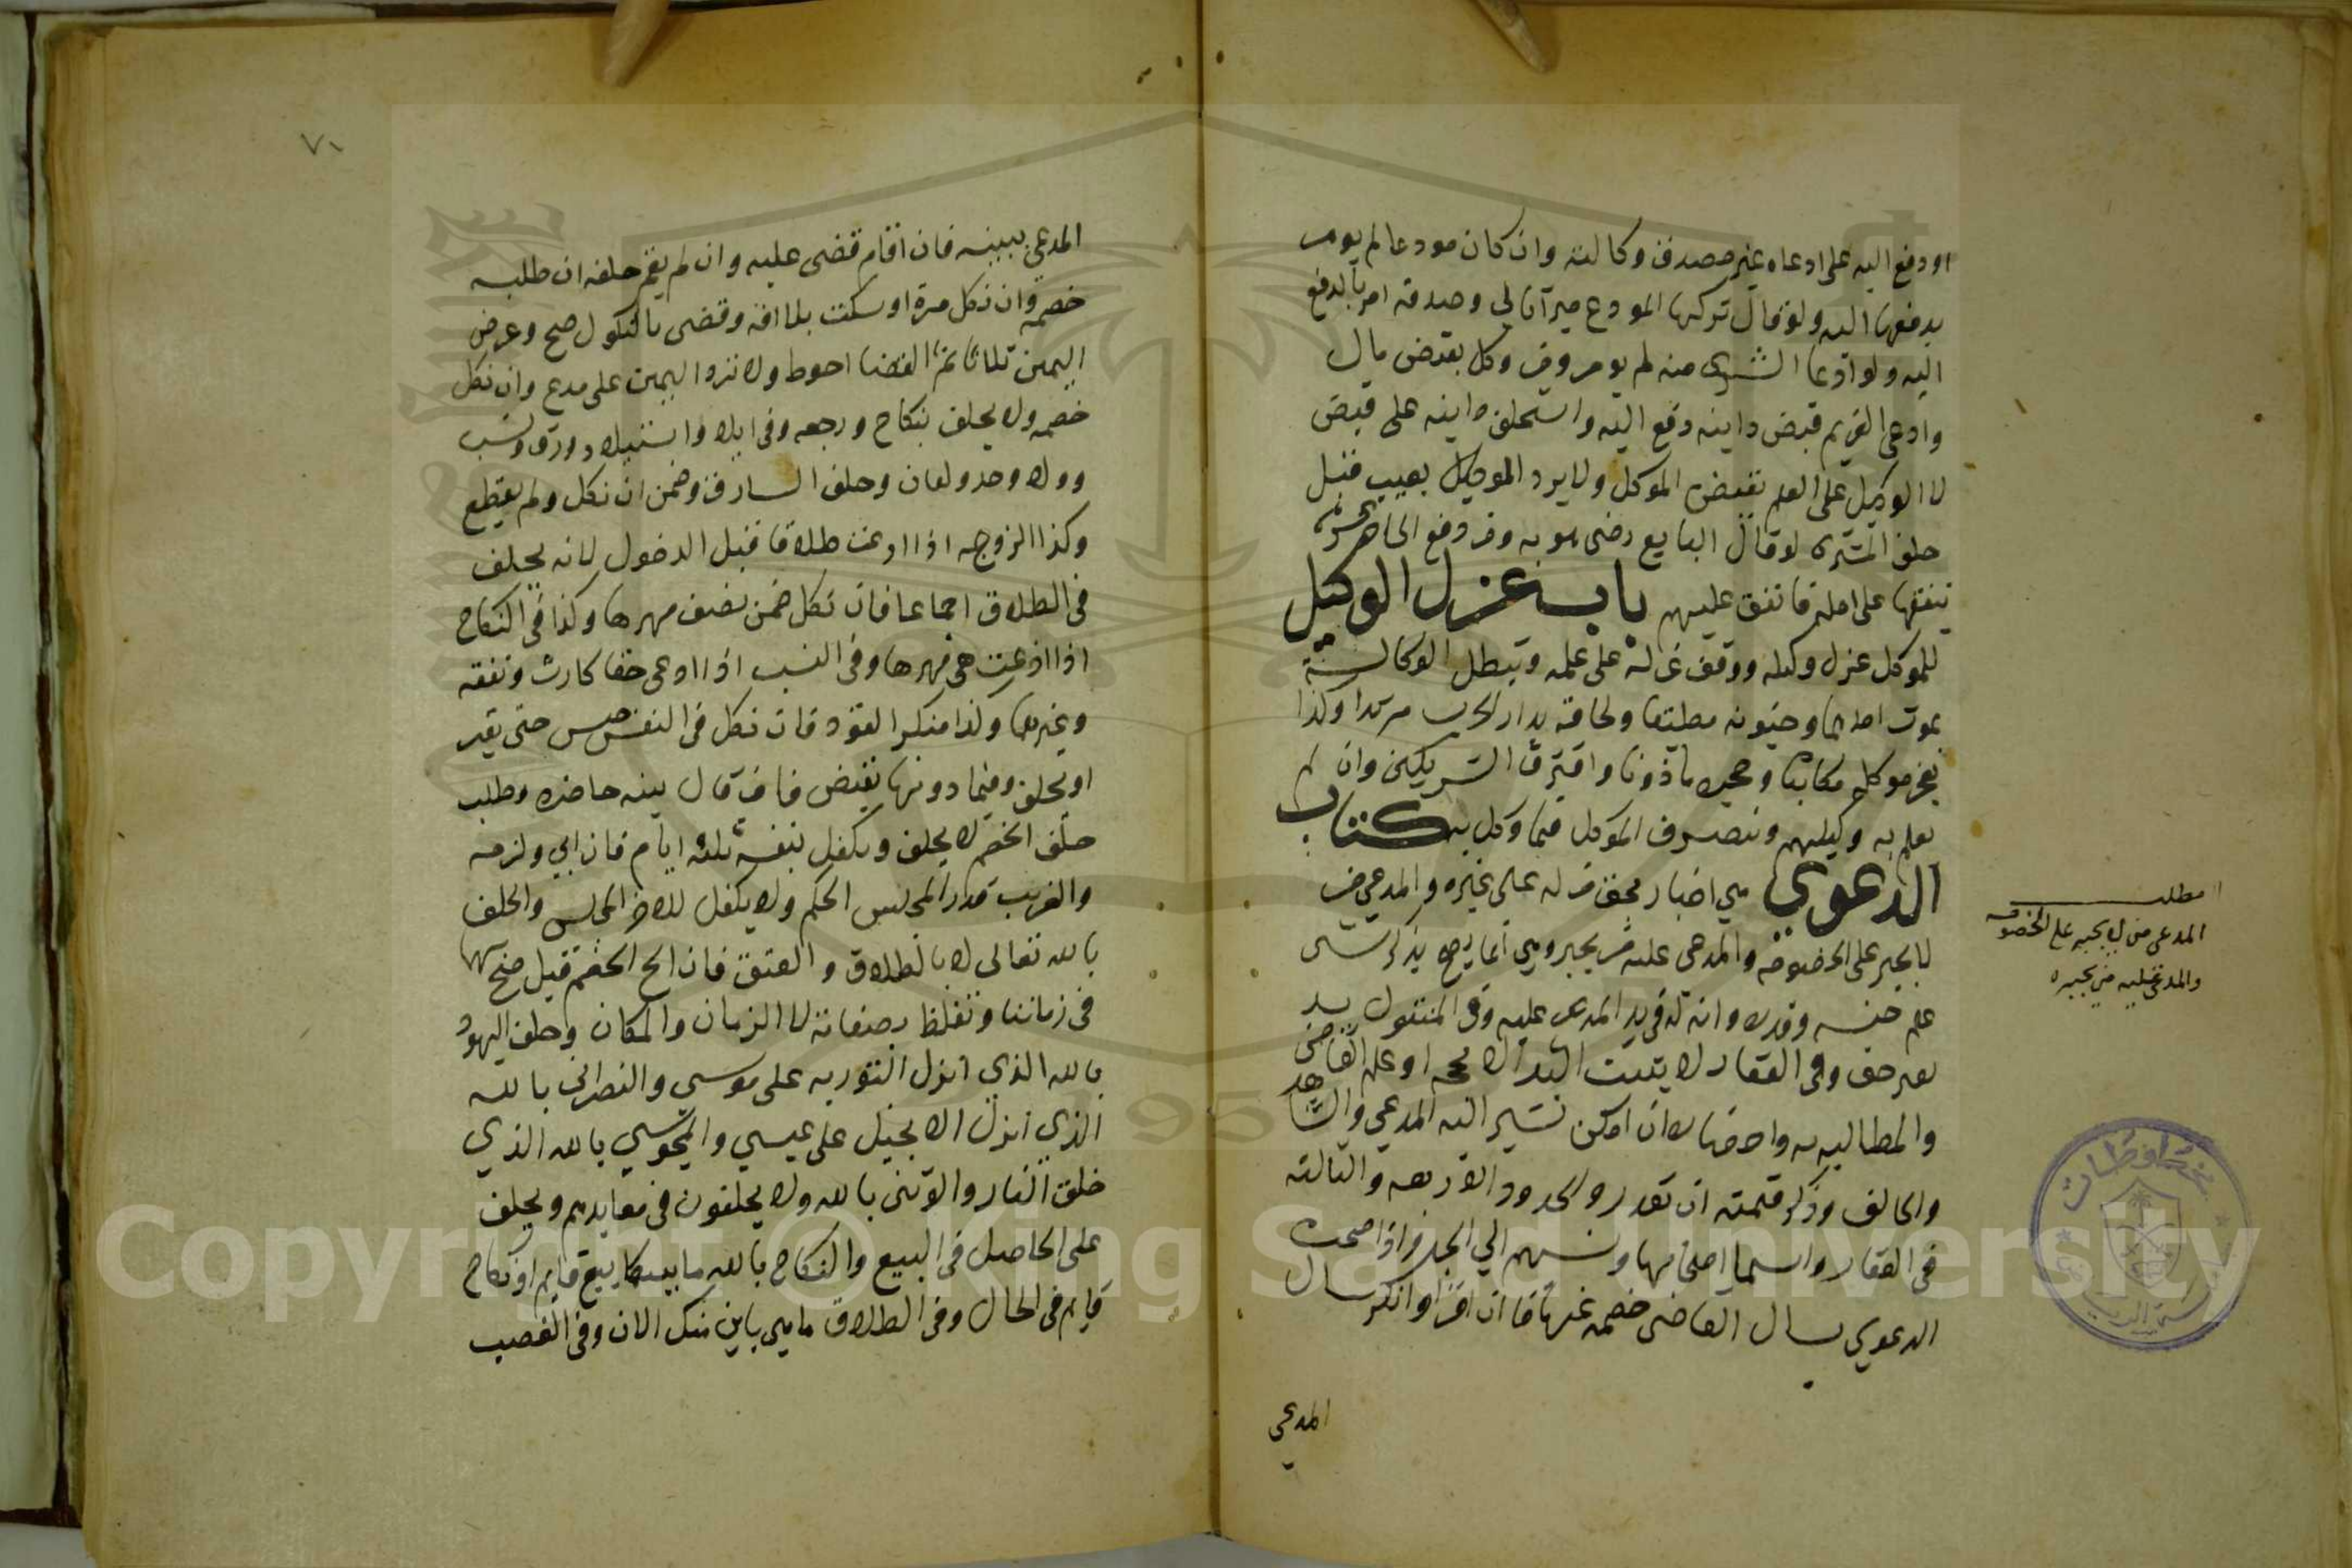 او دفع اليه على ادعاه غير مصدق وكالته وان كان مودعا لم يومر
بدفعها اليه ولو قال تركها المودع ميراثا لي وصدقه امر بالدفع
اليه ولو ادعا الشرى منه لم يومر وفي وكل بقبض مال
وادعى الغريم قبض داينه دفع اليه واستحلف داينه على قبضه
لا الوكيل على العلم بقبض الموكل ولا يرد الوكيل بعيب قبل
حلف المشترى لو قال البايع رضى هو به ومن دفع الى اخر عشرة
ينفقها على اهله فانفق عليهم باب عزل الوكيل
للموكل عزل وكيله ووقف عزله على علمه وتبطل الوكالة
بموت احدهما وجنونه مطبقا ولحاقه بدار الحرب مرتدا وكذا
بعجز موكله مكاتبا وحجره ماذونا وافتراق الشريكين وان لم
يعلم به وكيلهم وبتصرف الموكل فيما وكل به كتاب
الدعوي هي اخبار بحق له على غيره والمدعي من
لا يجبر على الخصومة والمدعى عليه من يجبر وهي انما يصح بذكر شى
علم جنسه وقدره وانه في يد المدعى عليه وفي المنقول يد
بغير حق وفي العقار لا يثبت اليد الا بحجه او علم القاضي
والمطالبه به واحضاره ان امكن ليشير اليه المدعي والشاهد
والحالف وذكر قيمته ان تعذر والحدود الاربعه والثالثه
في العقار واسما اصحابها ونسبهم الي الجد واذا صحت
الدعوي سال القاضى خصمه عنها فان اقر او انكر سال
المدعي
مطلب
المدعى من لا يجبر على الخصومه
والمدعى عليه من يجبره
٧١
المدعي ببينه فان اقام قضى عليه وان لم يقم حلفه ان طلبه
خصمه وان نكل مرة او سكت بلا افه وقضى بالنكول صح وعرض
اليمين ثلاثا ثم القضا احوط ولا ترد اليمين على مدع وان نكل
خصمه ولا يحلف بنكاح ورجعه وفي ايلاء واستيلاد ورق ونسب
وولا وحد ولعان وحلف السارق وضمن ان نكل ولم يقطع
وكذا الزوجه اذا ادعت طلاقا قبل الدخول لانه يحلف
في الطلاق اجماعا فان نكل ضمن نصف مهرها وكذا في النكاح
اذا ادعت هى مهرها وفي النسب اذا ادعى حقا كارث ونفقه
وغيرها وكذا منكر القود فان نكل في النفس حبس حتى يقر
او يحلف وفيما دونها يقتص فان قال بينه حاضره وطلب
حلف الخصم لا يحلف ويكفل بنفسه ثلثه ايام فان ابي ولزمه
والغريب قدر المجلس الحكم ولا يكفل للاخر المجلس والحلف
بالله تعالى لا بالطلاق والعتق فان الح الخصم قيل صح بهما
في زماننا وتغلظ بصفاته لا الزمان والمكان وحلف اليهود
بالله الذي انزل التوريه على موسى والنصراني بالله
الذي انزل الانجيل على عيسي والمجوسي بالله الذي
خلق النار والوثني بالله ولا يحلفون في معابدهم ويحلف
على الحاصل في البيع والنكاح بالله ما بينكما بيع قايم او نكاح
قايم في الحال وفي الطلاق ما هي باين منك الان وفي الغصب
Copyright © King Saud University